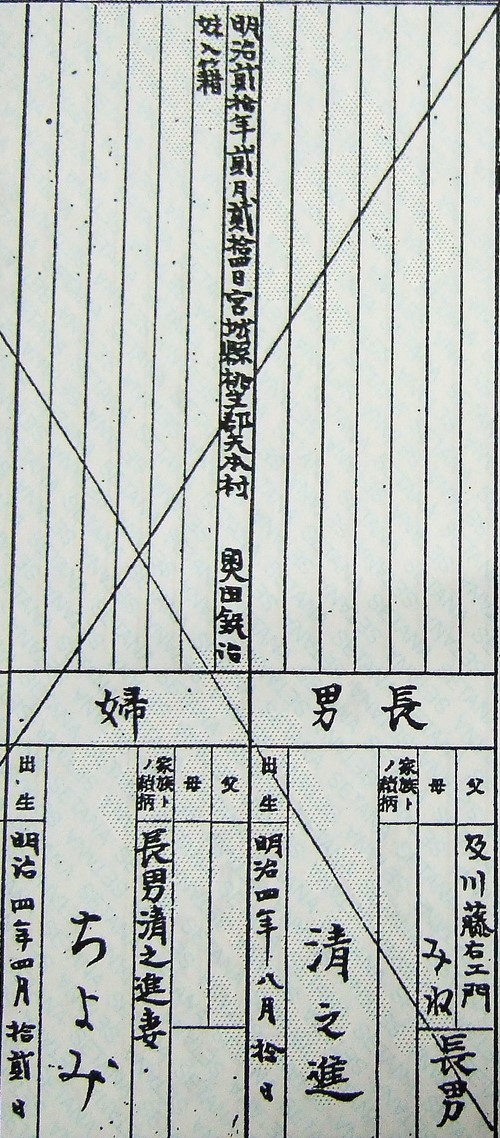 長男
父
及川藤右エ門
母
みね
長男
家族トノ続柄
清之進
出生
明治四年八月拾日
明治貳拾年貳月貳拾四日宮城縣桃生郡矢本村 奥田鋭治
姓入籍
婦
父
母
家族トノ続柄
長男清之進妻
ちよみ
出生
明治四年四月拾貳日